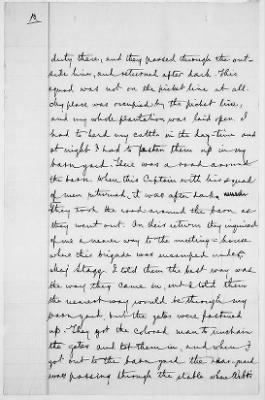 13
duty there, and they passed through the out-
side line, and returned after dark. This
squad was not on the picket line at all.
My place was occupied by the picket line,
and my whole plantation was laid open. I
had to herd my cattle in the day-time and
at night I had to fasten them up in my
barn yard. There was a road around
the barn. When this Captain with his squad
of men returned, it was after dark,
They took the road around the barn as
they went out. On their return they inquired
of me a nearer way to the meeting-house
where this brigade was encamped under
Maj Stagg. I told them the best way was
the way they came in, but I told them
the nearest way would be through my
barn yard, but the gates were fastened
up. They got the colored man to unchain
the gates and let them in, and when I
got out to the barn yard the rear-guard
was passing through the stable when